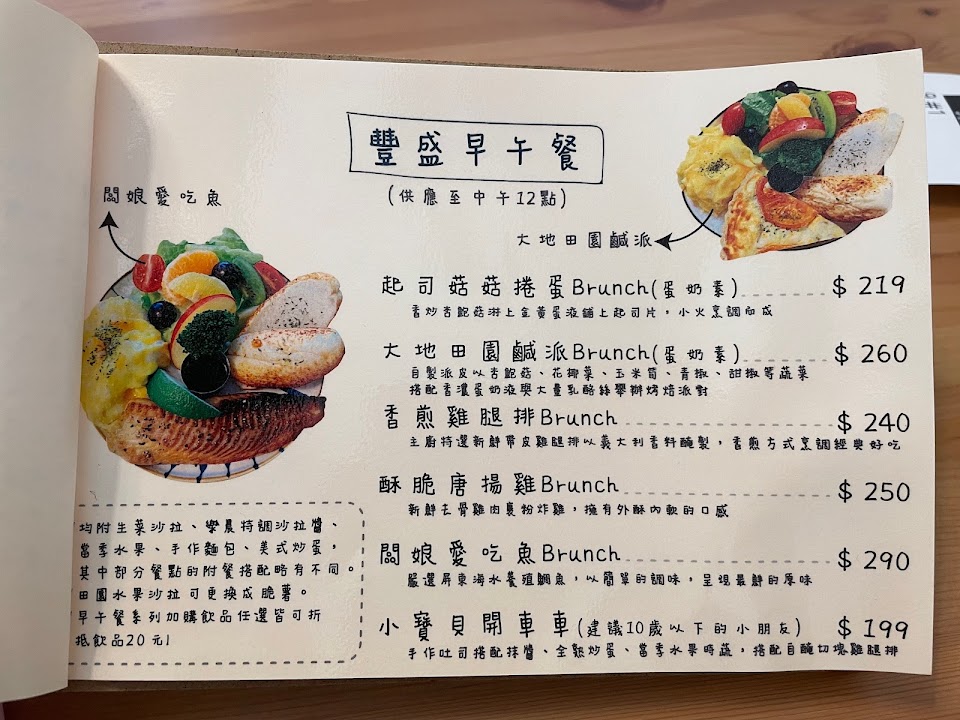 豐盛早午餐
(供應至中午12點)
闆娘愛吃魚
大地田園鹹派
起司菇菇捲蛋Brunch(蛋奶素) $219
香炒杏鮑菇淋上金黃蛋液鋪上起司片,小火烹調而成
大地田園鹹派Brunch(蛋奶素) $260
自製派皮以杏鮑菇、花椰菜、玉米筍、青椒、甜椒等蔬菜
搭配香濃蛋奶液與大量乳酪絲舉辦烤焙派對
香煎雞腿排Brunch $240
主廚特選新鮮帶皮雞腿排以義大利香料醃製,香煎方式烹調經典好吃
酥脆唐揚雞Brunch $250
新鮮去骨雞肉裹粉炸雞,擁有外酥內軟的口感
闆娘愛吃魚Brunch $290
嚴選屏東海水養殖鯛魚,以簡單的調味,呈現最鮮的原味
小寶貝開車車(建議10歲以下的小朋友) $199
手作吐司搭配抹醬、全熟炒蛋、當季水果時蔬,搭配自醃切塊雞腿排
均附生菜沙拉、樂晨特調沙拉醬、
當季水果、手作麵包、美式炒蛋,
其中部分餐點的附餐搭配略有不同。
田園水果沙拉可更換成脆薯。
早午餐系列加購飲品任選皆可折
抵飲品20元!